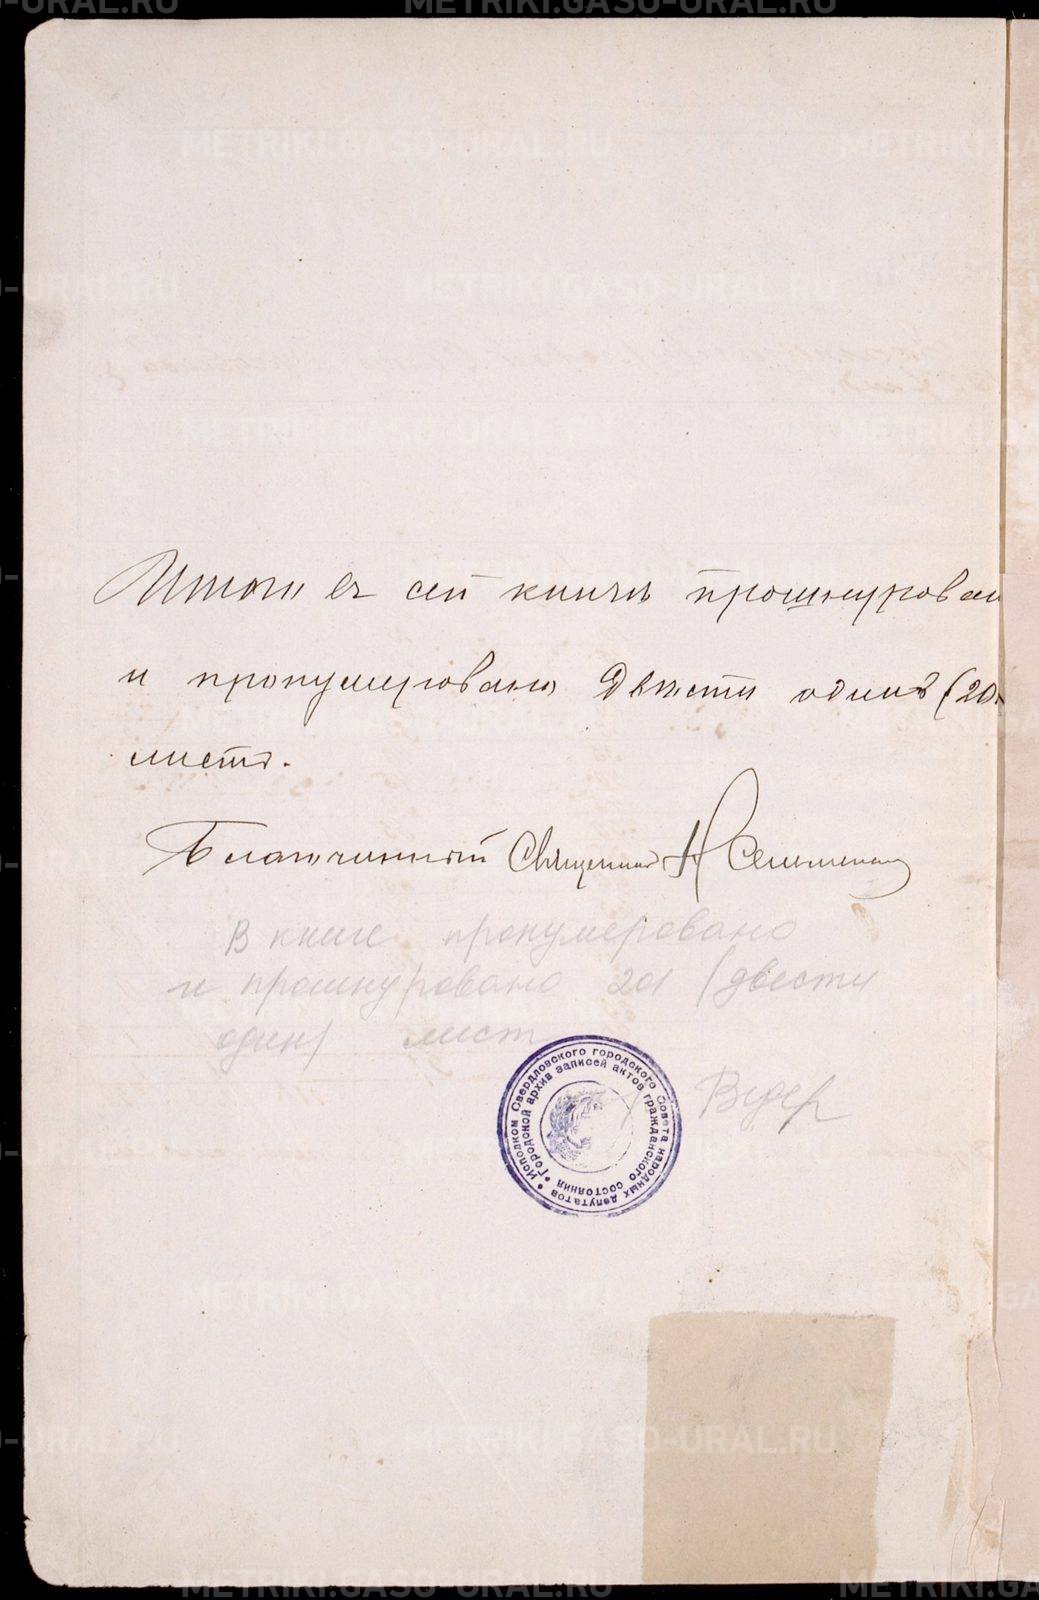 Итого въ сей книгѣ прошнурован
и пронумеровано двѣсти одинъ (201
листъ.
Благочинный Священникъ
В книге пронумеровано
и прошнуровано 201 (двести
один) лист
Исполком Свердловского городского Совета народных депутатов • Городской архив записей актов гражданского состояния •
METRIKI.GASO-URAL.RU